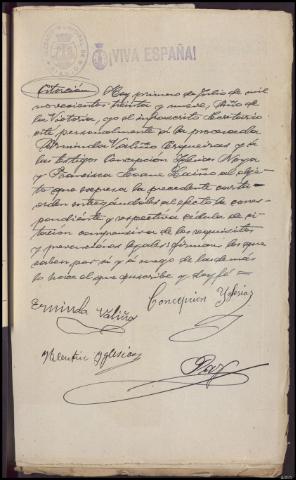 ¡VIVA ESPAÑA!
Citación.- Hoy, primero de Julio de mil
novecientos treinta y nueve, Año de
la Victoria, yo el infrascrito Secretario
cité personalmente a la procesada
Erminda Valiño y a
las testigos Concepción Iglesias Noya
y Francisca Seoane al obje-
to que expresa la precedente carta-
orden entregándoles al efecto la corres-
pondiente y respectiva cédula de ci-
tación comprensiva de los requisitos
y prevenciones legales; firman las que
saben por sí y a ruego de la demás
lo hace el que suscribe y doy fé=
Erminda Valiño
Concepcion Yglesias
Yglesias